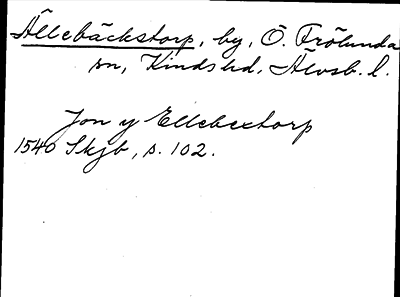 Ällebäckstorp, by, Ö. Frölunda
sn, Kinds hd, Älvsb. l.
Jon y Ellebextorp
1540 Skjb, s. 102.